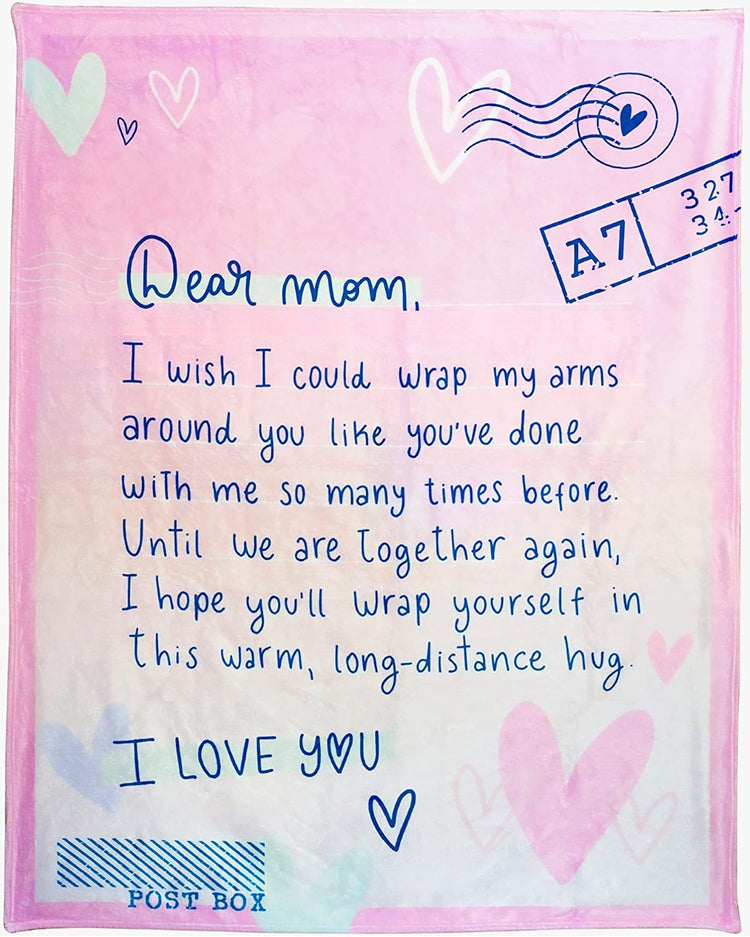 A7
327
34
Dear mom,
I wish I could wrap my arms
around you like you've done
with me so many times before.
Until we are together again,
I hope you'll wrap yourself in
this warm, long-distance hug.
I LOVE YOU
POST BOX